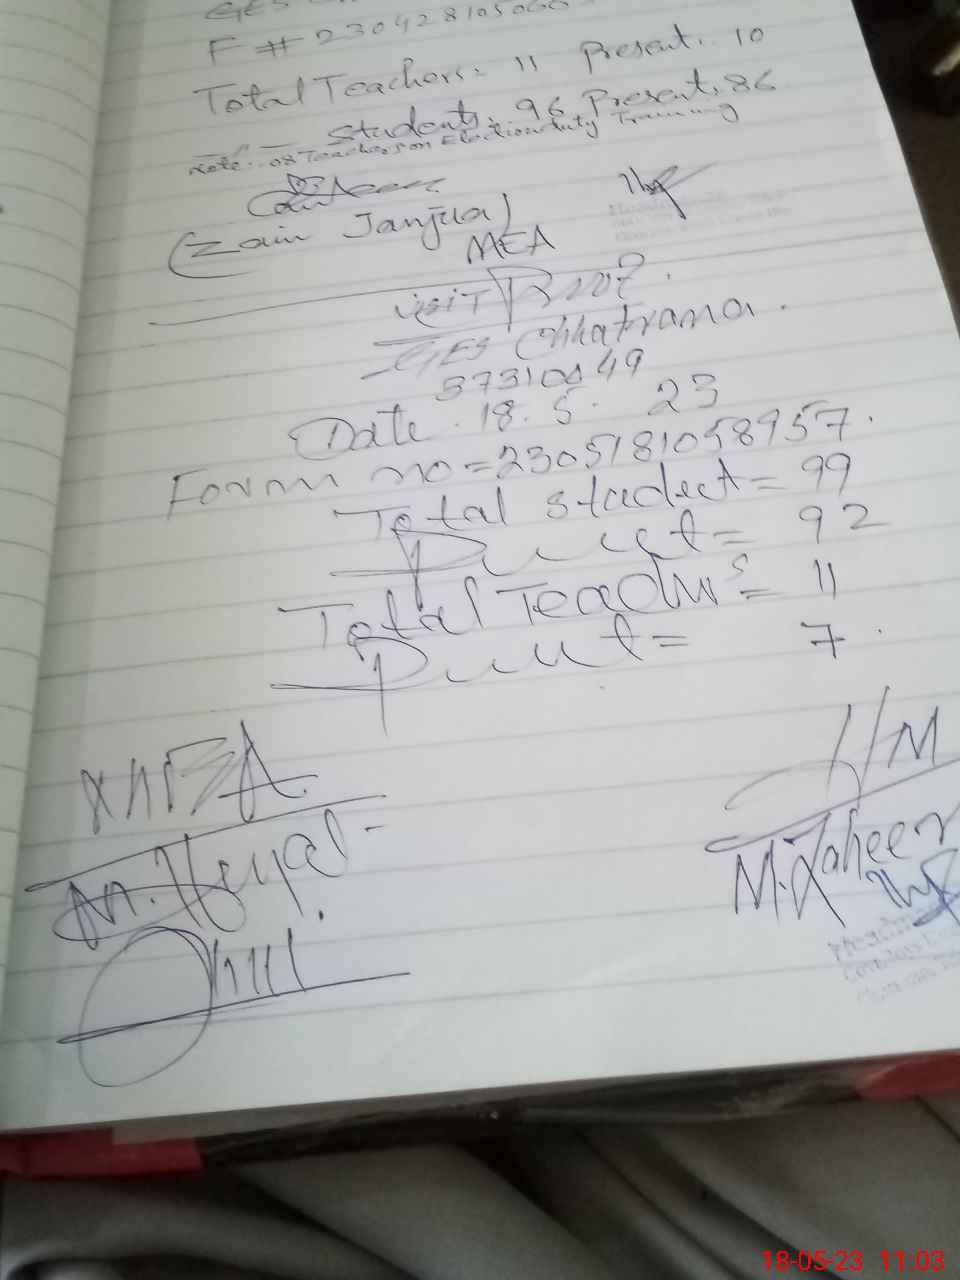 GES
F # 230428105066
Total Teachers: 11 Present: 10
Students: 96 Present: 86
Note: 08 Teachers on Election duty Training
(Zain Janjua)
MEA
Visit Proof
GES Chhatrana.
37310149
Date. 18. 5. 23
Form no=2305181058957.
Total student= 99
Present= 92
Total Teachers= 11
Present= 7.
H/M
M.Zaheer
M.
18-05-23 11:03